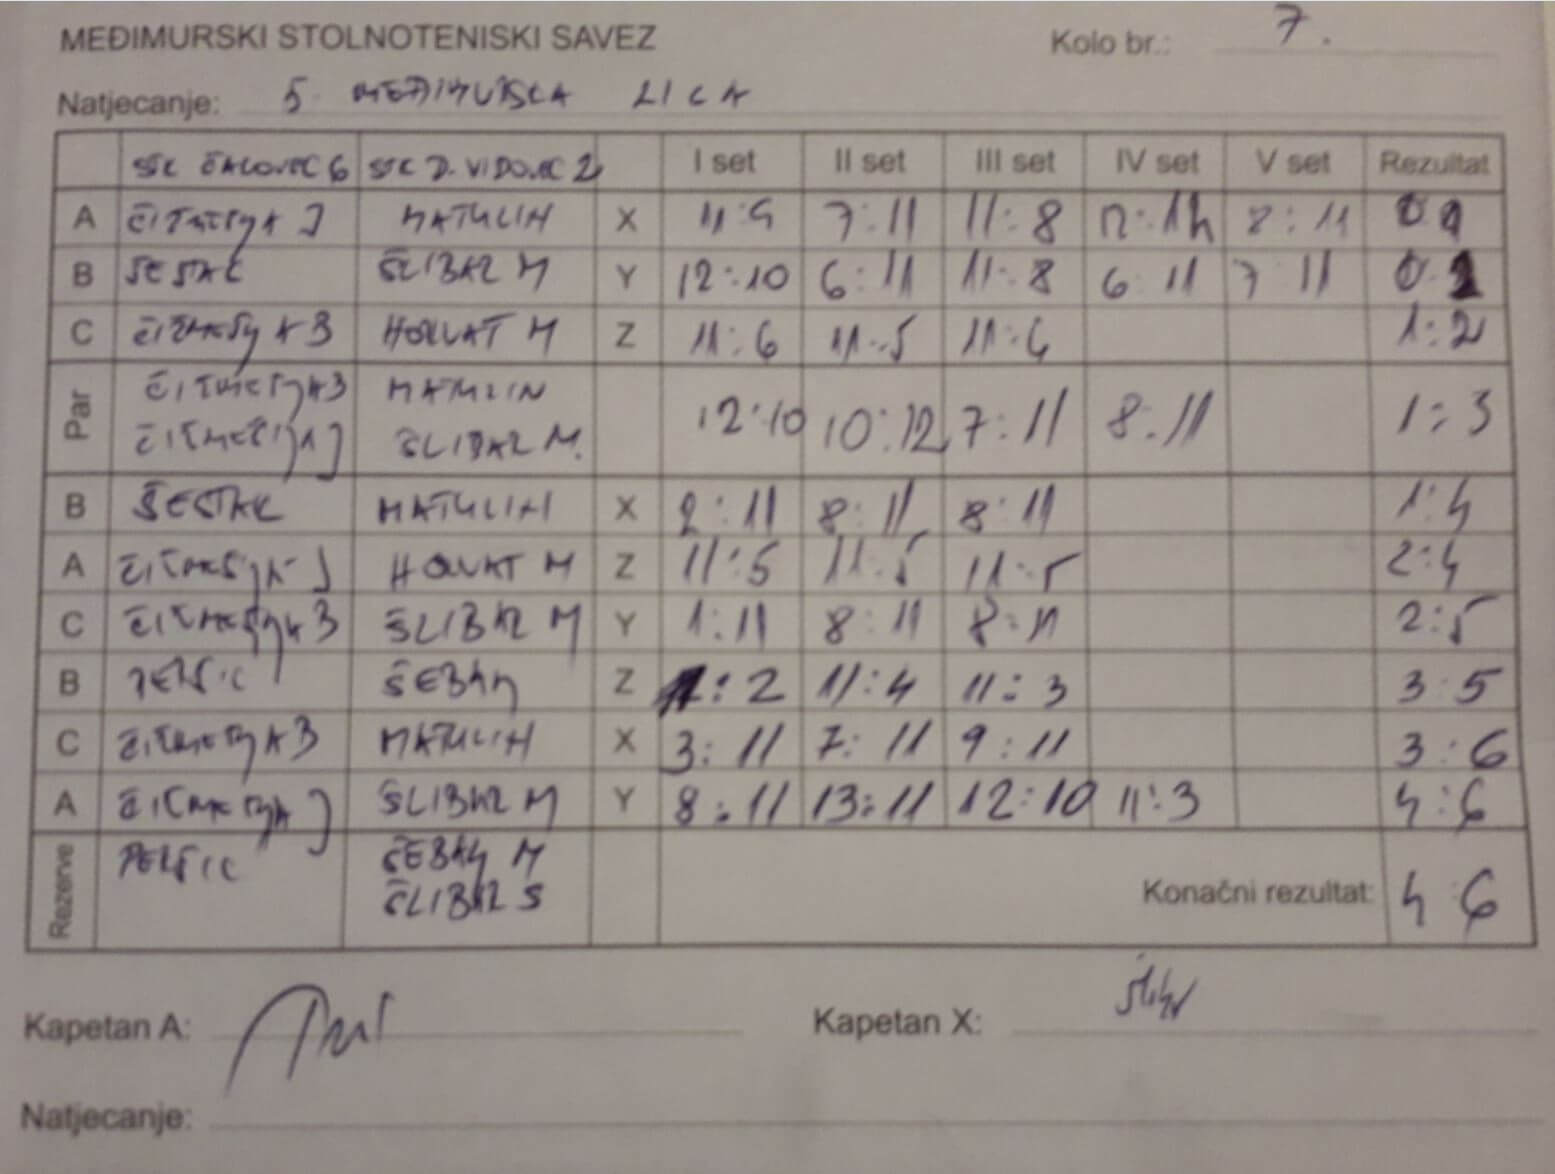 MEĐIMURSKI STOLNOTENISKI SAVEZ
Kolo br.: 7.
Natjecanje: 5. MEĐIMURSKA LIGA
STK ČAKOVEC 6 STK D. VIDOVEC 2 I set II set III set IV set V set Rezultat
A J MATULIN X 11:9 7:11 11:8 12:14 8:11 0 1
B ŠESTAK ŠLIBAR M Y 12:10 6:11 11:8 6 11 7 11 0 2
C B HORVAT M Z 11:6 11:5 11:6 1:2
Par B MATULIN 12:10 10:12 7:11 8:11 1:3
J ŠLIBAR M.
B ŠESTAK MATULIN X 2:11 8:11 8:11 1:4
A J HORVAT M Z 11:5 11:5 11:5 2:4
C B ŠLIBAR M Y 1:11 8:11 8:11 2:5
B PERŠIĆ ŠEBAN Z 11:2 11:4 11:3 3:5
C B MATULIN X 3:11 7:11 9:11 3:6
A J ŠLIBAR M Y 8:11 13:11 12:10 11:3 4:6
Rezerve PERŠIĆ ŠEBAN M
ŠLIBAR S
Konačni rezultat: 4:6
Kapetan A: Kapetan X:
Natjecanje: